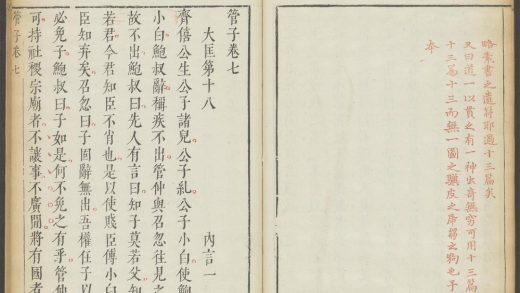 書之遺籍耶過十三篇矣
又曰道一以貫之有一神出奇無窮可用十三
十三篇十三而無一圖之驥皮之席芻之狗也予
管子卷七
大匡第十八 內言一
齊僖公生公子諸兒公子糺公子小白使鮑
小白鮑叔辭稱疾不出管仲與召忽往見之
故不出鮑叔曰先人有言曰知子莫若父知
若君今君知臣不肖也是以使賤臣傅小白
臣知弃矣召忽曰子固辭無出吾權任子以
必免子鮑叔曰子如是何不免之有乎管仲
可持社稷宗廟者不讓事不廣閒將有國者
管子卷七